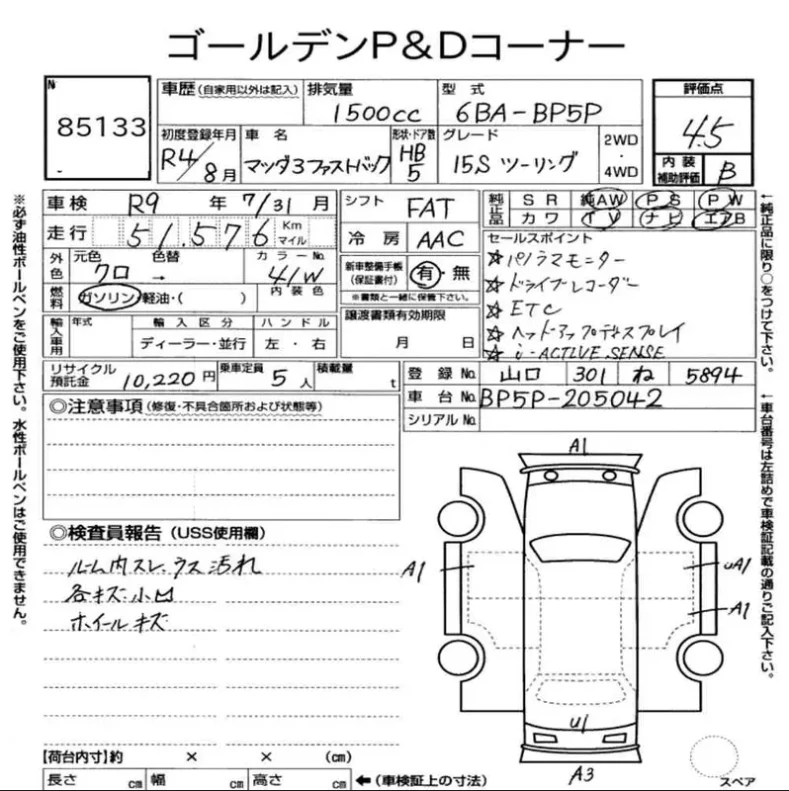 ゴールデンP&Dコーナー
№ 85133
車歴 (自家用以外は記入)
排気量 1500cc
型式 6BA-BP5P
評価点 4.5
初度登録年月 R4/8月
車名 マツダ3ファストバック
形状・ドア数 HB 5
グレード 15S ツーリング
2WD・4WD
内装補助評価 B
車検 R9年 7/31月
シフト FAT
純正品 SR 純AW PS PW
カワ TV ナビ エアB
走行 51,576 Km マイル
冷房 AAC
セールスポイント
☆パノラマモニター
☆ドライブレコーダー
☆ETC
☆ヘッドアップディスプレイ
☆i-ACTIVE.SENSE
外色 元色 クロ → 色替 カラーNo. 41W
新車整備手帳(保証書付) 有・無
※書類と一緒に保管下さい。
燃料 ガソリン・軽油・( ) 内装色
輸入車用 年式 輸入区分 ハンドル
ディーラー・並行 左・右
譲渡書類有効期限
月 日
リサイクル預託金 10,220円 乗車定員 5人 積載量 t
登録No. 山口 301 ね 5894
車台No. BP5P-205042
シリアルNo.
◎注意事項 (修復・不具合箇所および状態等)
◎検査員報告 (USS使用欄)
ルーム内スレ、ウス汚れ
各キズ・小凹
ホイールキズ
A1
A1
uA1
A1
U1
A3
スペア
【荷台内寸】約 × × (㎝)
長さ ㎝ 幅 ㎝ 高さ ㎝ ←(車検証上の寸法)
※必ず油性ボールペンをご使用下さい。水性ボールペンはご使用できません。
←純正品に限り○をつけて下さい。
←車台番号は左詰めで車検証記載の通りご記入下さい。